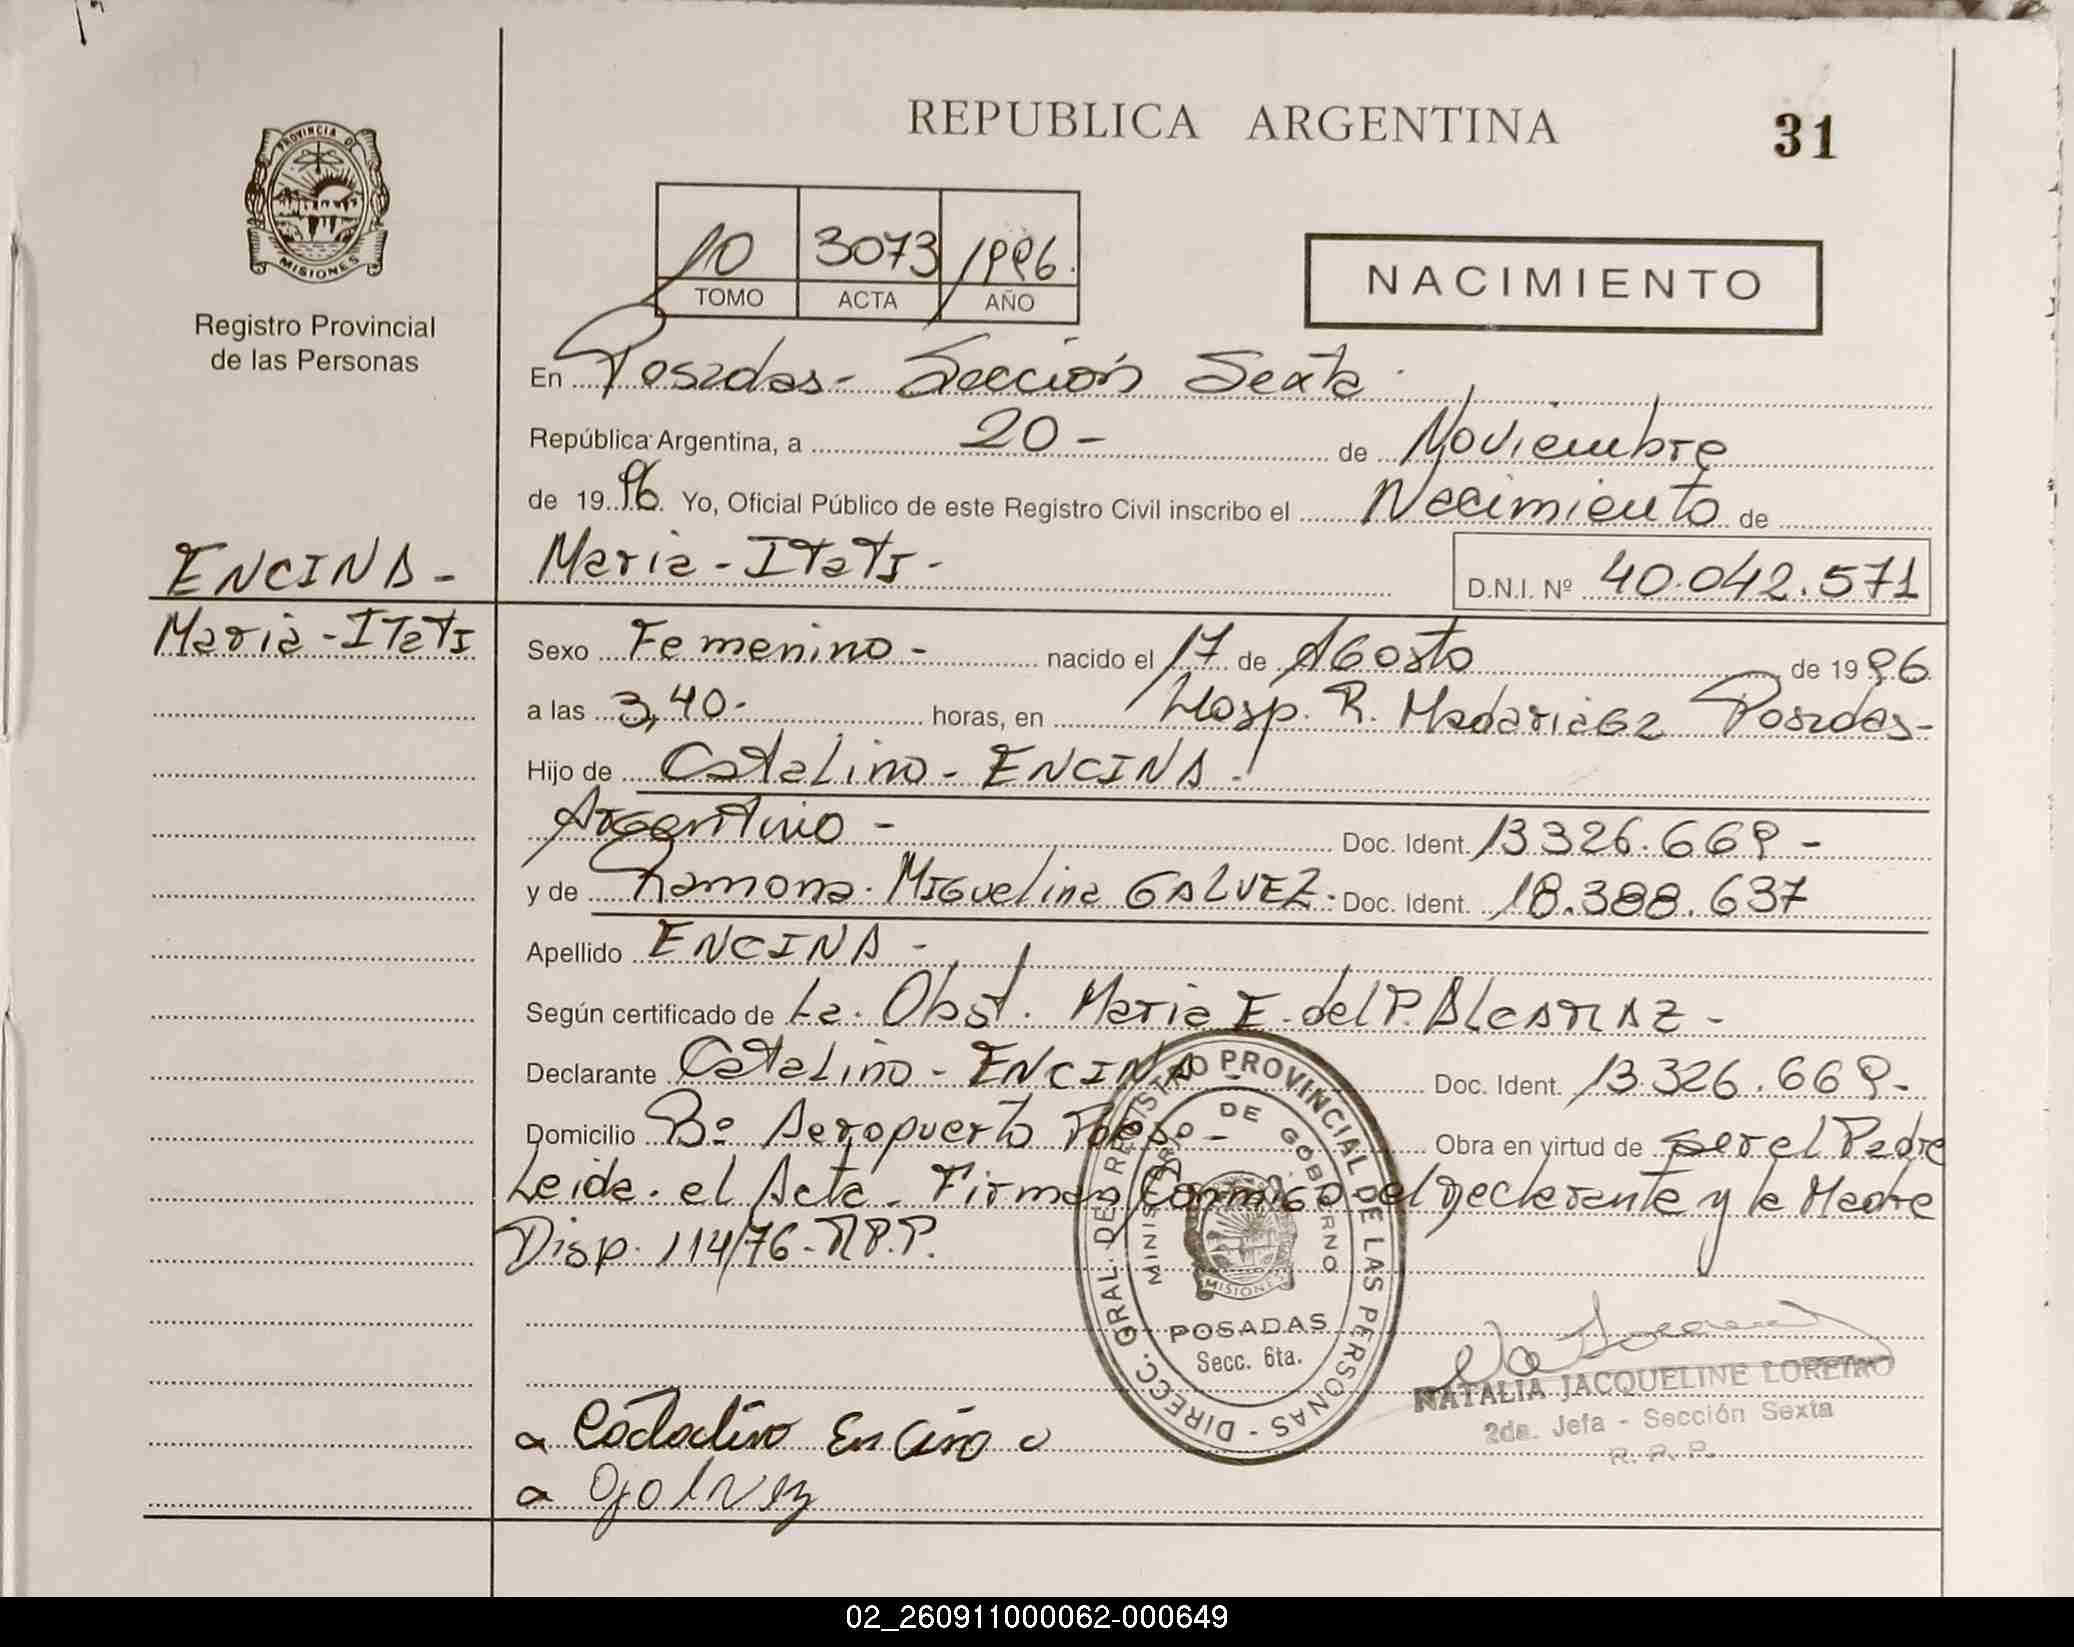 REPUBLICA ARGENTINA
31
PROVINCIA DE
MISIONES
Registro Provincial
de las Personas
10 3073 1996.
TOMO ACTA AÑO
NACIMIENTO
En Posadas - Sección Sexta
República Argentina, a 20 - de Noviembre
de 1996. Yo, Oficial Público de este Registro Civil inscribo el Nacimiento de
ENCINA -
Maria - ITaTI
Maria - ITaTI - D.N.I. Nº 40.042.571
Sexo Femenino - nacido el 17 de AGosto de 1996
a las 3,40 - horas, en Hosp. R. Madariaga Posadas -
Hijo de Catalino - ENCINA.
Argentino - Doc. Ident. 13.326.669 -
y de Ramona Miguelina GALVEZ. Doc. Ident. 18.388.637
Apellido ENCINA -
Según certificado de La Obst. Maria E. del P. ALCARAZ -
Declarante Catalino - ENCINA - Doc. Ident. 13.326.669 -
Domicilio Bº Aeropuerto Obra en virtud de ser el Padre
Leida el Acta - Firman Conmigo el declarante y la Madre
Disp. 114/76 - R.P.P.
DIRECC. GRAL. DEL REGISTRO PROVINCIAL DE LAS PERSONAS -
MINISTERIO DE GOBIERNO
MISIONES
POSADAS
Secc. 6ta.
NATALIA JACQUELINE LOREIRO
2da. Jefa - Sección Sexta
R. P. P.
Encina
02_260911000062-000649